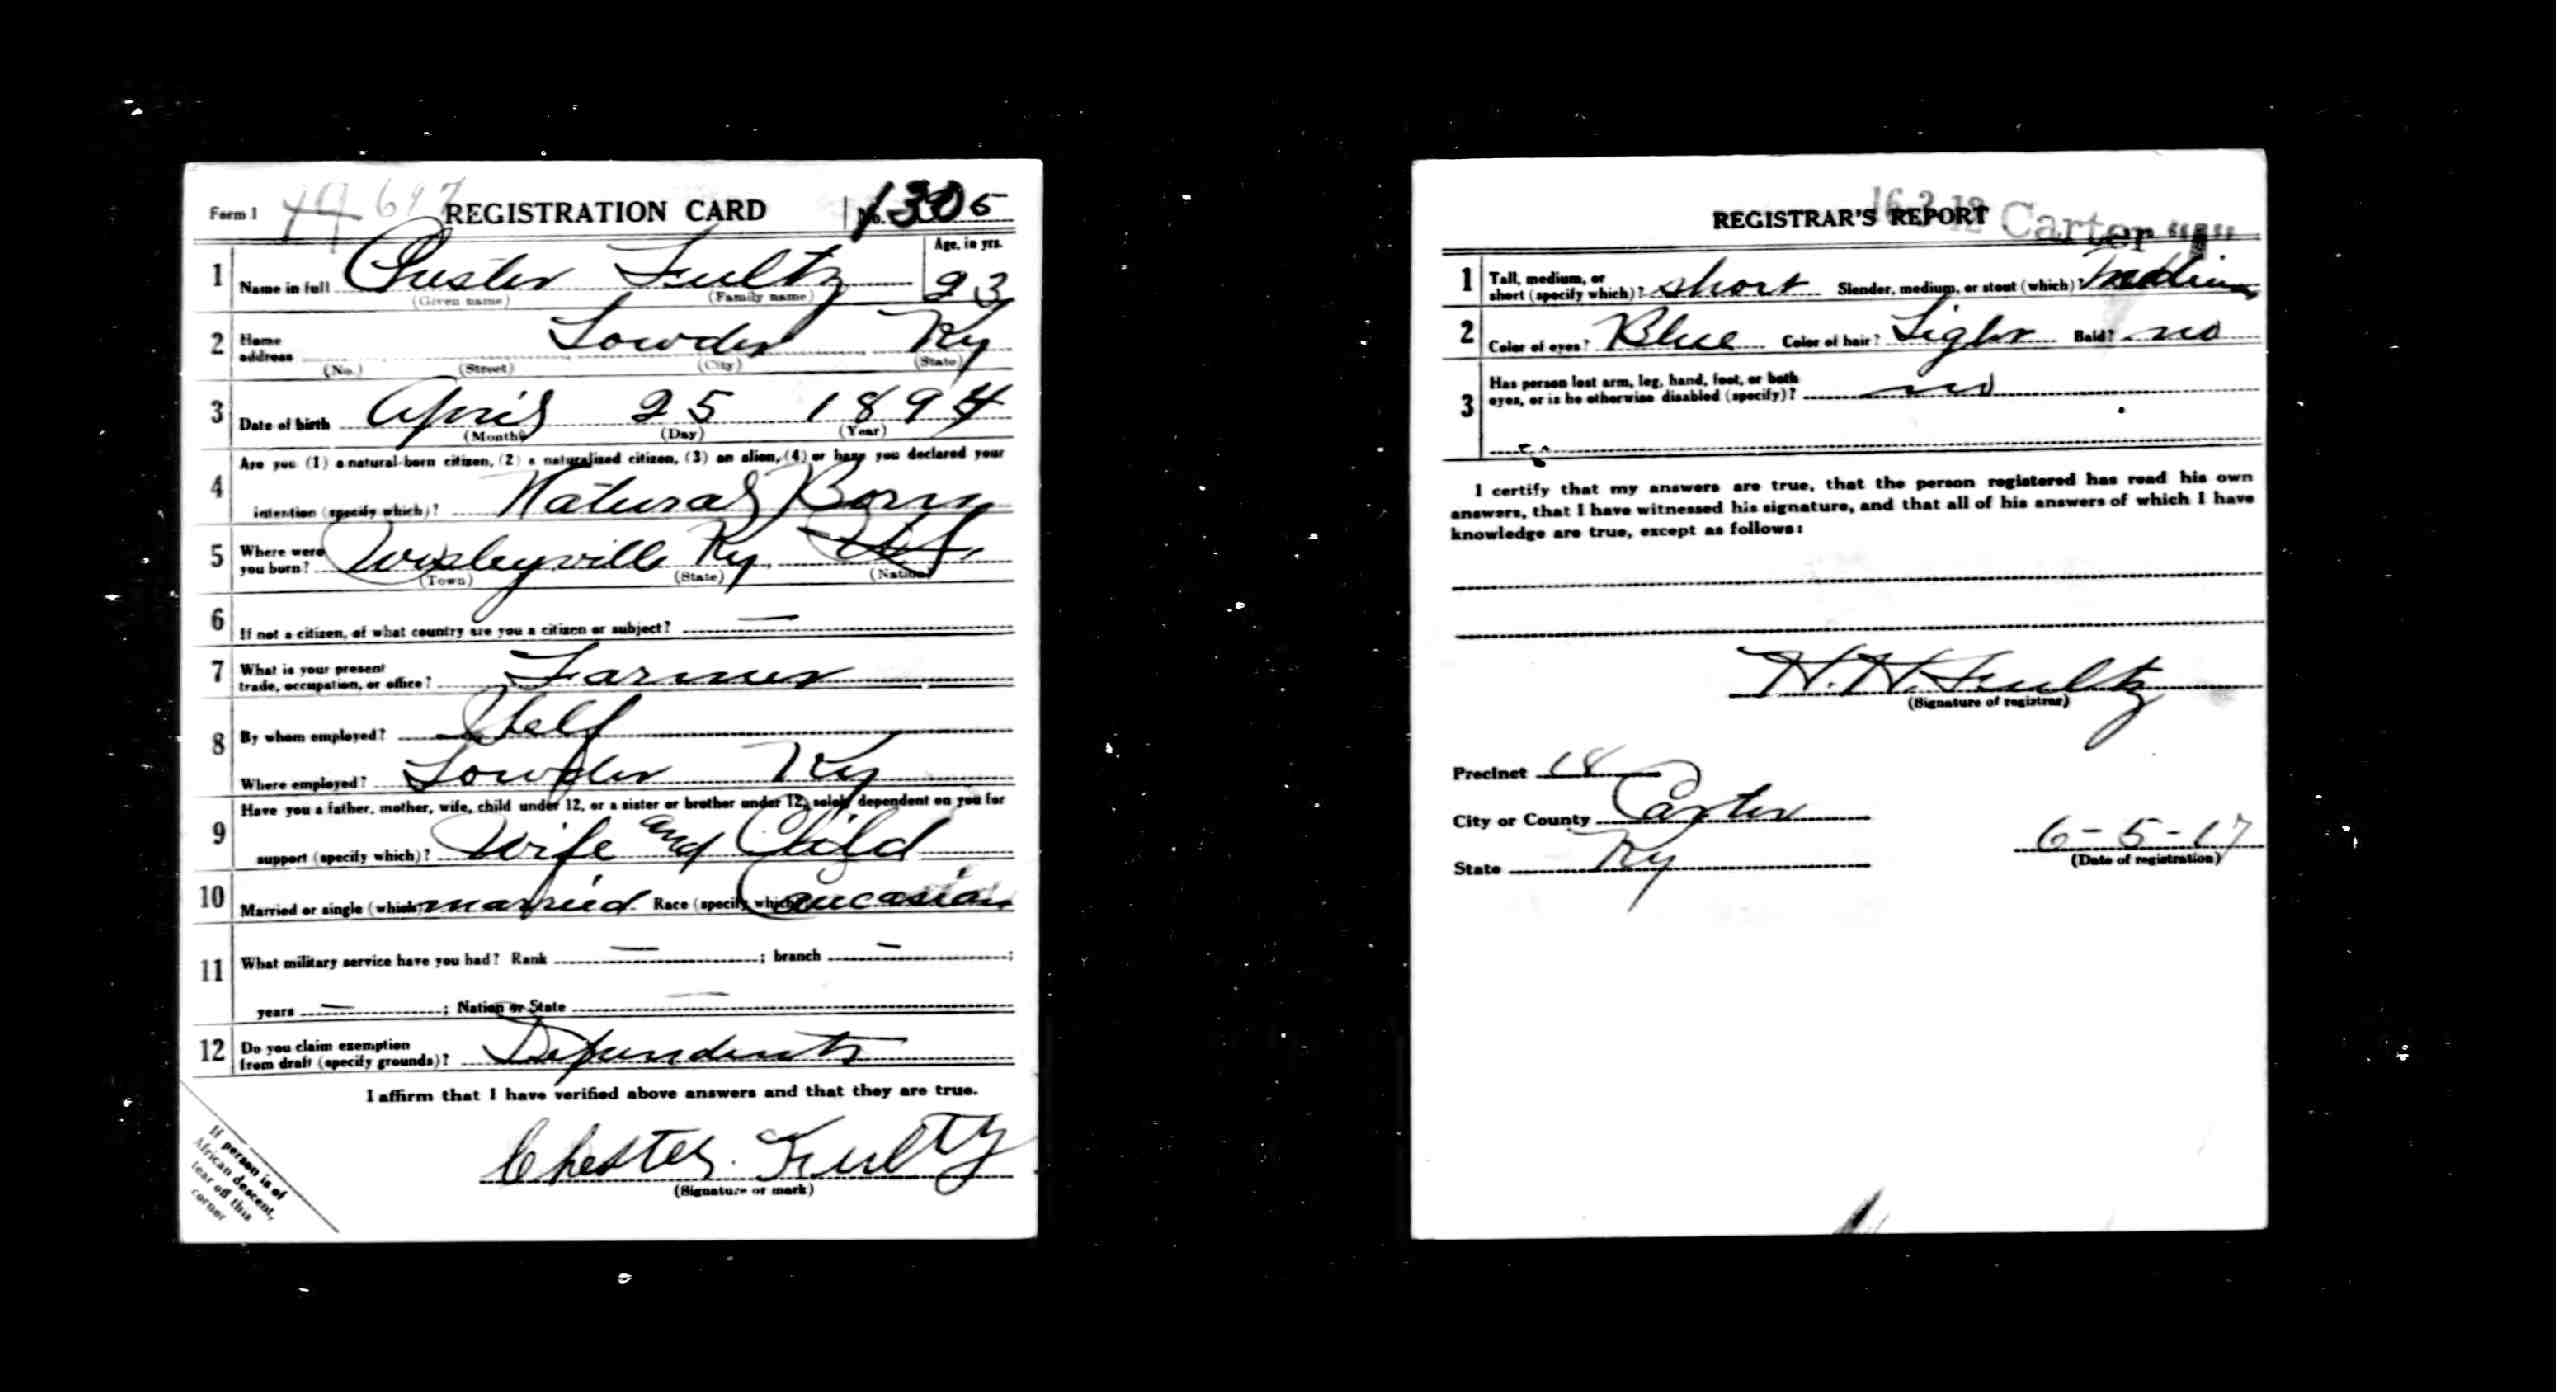 Form 1 697 REGISTRATION CARD No. 1305
1 Name in full Chester Fultz Age, in yrs. 23
(Given name) (Family name)
2 Home address Lowder Ky
(No.) (Street) (City) (State)
3 Date of birth April 25 1894
(Month) (Day) (Year)
Are you (1) a natural-born citizen, (2) a naturalized citizen, (3) an alien, (4) or have you declared your
4 intention (specify which)? Natural Born
5 Where were you born? Wesleyville Ky
(Town) (State) (Nation)
6 If not a citizen, of what country are you a citizen or subject? —
7 What is your present
trade, occupation, or office? Farmer
8 By whom employed? Self
Where employed? Lowder Ky
Have you a father, mother, wife, child under 12, or a sister or brother under 12, solely dependent on you for
9 support (specify which)? Wife and Child
10 Married or single (which)? married. Race (specify which)? Caucasian
11 What military service have you had? Rank — ; branch — ;
years — ; Nation or State —
12 Do you claim exemption
from draft (specify grounds)? Dependents
I affirm that I have verified above answers and that they are true.
Chester Fultz
(Signature or mark)
If person is of
African descent,
tear off this
corner
REGISTRAR'S REPORT 16-3-12 Carter
1 Tall, medium, or
short (specify which)? short Slender, medium, or stout (which)? Medium
2 Color of eyes? Blue Color of hair? Light Bald? no
3 Has person lost arm, leg, hand, foot, or both
eyes, or is he otherwise disabled (specify)? no
I certify that my answers are true, that the person registered has read his own
answers, that I have witnessed his signature, and that all of his answers of which I have
knowledge are true, except as follows:
H. H. Fultz
(Signature of registrar)
Precinct 18
City or County Carter
State Ky
6-5-17
(Date of registration)